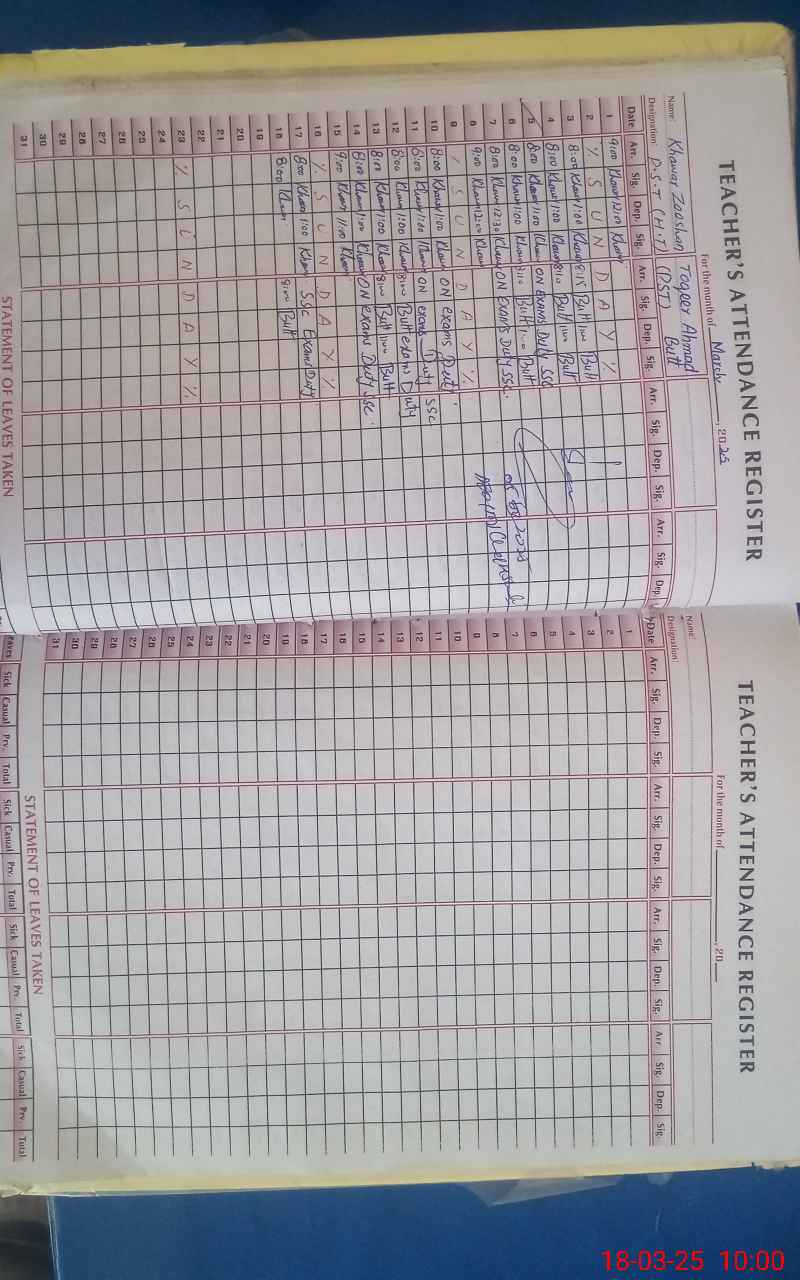 TEACHER'S ATTENDANCE REGISTER
For the month of March, 2025
Name: Khawar Zaoshan Toqeer Ahmad Butt
Designation: P.S.T (H.T) (PST)
Date Arr. Sig. Dep. Sig. Arr. Sig. Dep. Sig. Arr. Sig. Dep. Sig. Arr. Sig. Dep.
1 9:00 Khawar 12:00 Khawar
2 % S U N D A Y %
3 8:00 Khawar 1:00 Khawar 8:15 Butt 1:00 Butt
4 8:00 Khawar 1:00 Khawar 8:10 Butt 1:00 Butt
5 8:00 Khawar 1:00 Khawar ON EXAMS Duty SSC
6 8:00 Khawar 1:00 Khawar 8:10 Butt 1:00 Butt
7 8:00 Khawar 12:30 Khawar ON EXAMS Duty SSC.
8 9:00 Khawar 12:00 Khawar
9 % S U N D A Y %
10 8:00 Khawar 1:00 Khawar ON exams Duty
11 8:00 Khawar 1:00 Khawar ON exams Duty SSC
12 8:00 Khawar 1:00 Khawar 8:00 Butt exams Duty
13 8:00 Khawar 1:00 Khawar 8:00 Butt 1:00 Butt
14 8:00 Khawar 1:00 Khawar ON exams Duty SSC.
15 9:00 Khawar 11:00 Khawar
16 % S U N D A Y %
17 8:00 Khawar 1:00 Khawar SSC Exams Duty
18 8:00 Khawar 8:00 Butt
19
20
21
22
23 % S U N D A Y %
24
25
26
27
28
29
30
31
STATEMENT OF LEAVES TAKEN
TEACHER'S ATTENDANCE REGISTER
For the month of , 20
Name:
Designation:
Date Arr. Sig. Dep. Sig. Arr. Sig. Dep. Sig. Arr. Sig. Dep. Sig. Arr Sig. Dep. Sig.
1
2
3
4
5
6
7
8
9
10
11
12
13
14
15
16
17
18
19
20
21
22
23
24
25
26
27
28
29
30
31
STATEMENT OF LEAVES TAKEN
Leaves Sick Casual Prv. Total Sick Casual Prv. Total Sick Casual Prv. Total Sick Casual Prv. Total
18-03-25 10:00